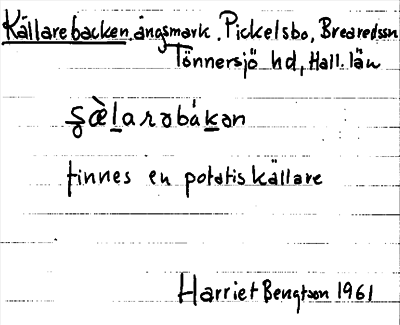 Källarebacken, ängsmark. Pickelsbo, Breared ssn
Tönnersjö hd, Hall. län
ʂæ̀larəbákən
finnes en potatiskällare
Harriet Bengtson 1961